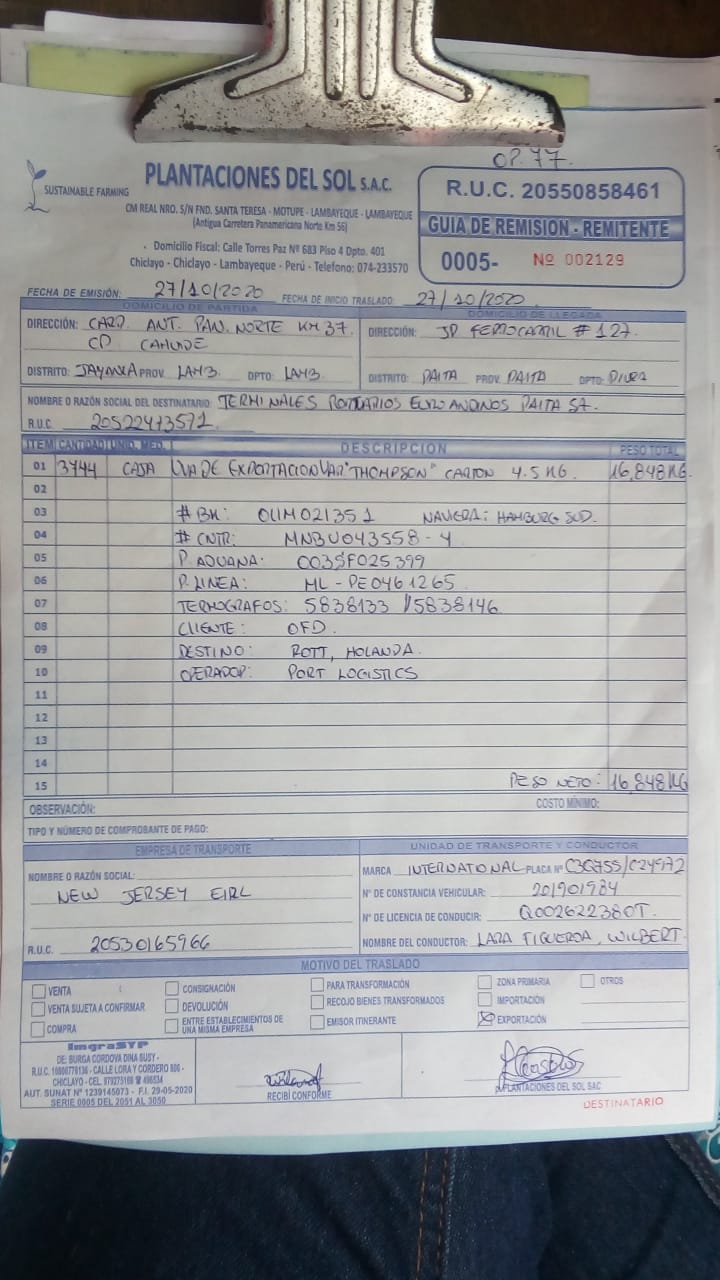 OP. 77.
SUSTAINABLE FARMING
PLANTACIONES DEL SOL S.A.C.
CM REAL NRO. S/N FND. SANTA TERESA - MOTUPE - LAMBAYEQUE - LAMBAYEQUE
(Antigua Carretera Panamericana Norte Km 56)
Domicilio Fiscal: Calle Torres Paz Nº 683 Piso 4 Dpto. 401
Chiclayo - Chiclayo - Lambayeque - Perú - Telefono: 074-233570
R.U.C. 20550858461
GUIA DE REMISION - REMITENTE
0005- Nº 002129
FECHA DE EMISIÓN: 27/10/2020 FECHA DE INICIO TRASLADO: 27/10/2020.
DOMICILIO DE PARTIDA
DIRECCIÓN: CARR. ANT. PAN. NORTE KM 37.
CP
DISTRITO: JAYANCA PROV. LAMB. DPTO: LAMB.
DOMICILIO DE LLEGADA
DIRECCIÓN: JR FERROCARRIL # 127.
DISTRITO: PAITA PROV. PAITA DPTO: PIURA
NOMBRE O RAZÓN SOCIAL DEL DESTINATARIO: TERMINALES PORTUARIOS EUROANDINOS PAITA SA.
R.U.C. 20522473571
ITEM CANTIDAD UNID. MED. DESCRIPCION PESO TOTAL
01 3744 CAJA UVA DE EXPORTACION VAR "THOMPSON" CARTON 4.5 KG. 16,848 KG.
02
03 # BK: OLIM021351 NAVIERA: HAMBURG SUD.
04 # CNTR: MNBU043558-4
05 P. ADUANA: 0035F025399
06 P. LINEA: ML-PE0461265
07 TERMOGRAFOS: 5838133 / 5838146
08 CLIENTE: OFD.
09 DESTINO: ROTT, HOLANDA.
10 OPERADOR: PORT LOGISTICS
11
12
13
14
15 PESO NETO: 16,848 KG
OBSERVACIÓN: COSTO MÍNIMO:
TIPO Y NÚMERO DE COMPROBANTE DE PAGO:
EMPRESA DE TRANSPORTE
NOMBRE O RAZÓN SOCIAL:
NEW JERSEY EIRL
R.U.C. 20530165966
UNIDAD DE TRANSPORTE Y CONDUCTOR
MARCA INTERNATIONAL PLACA Nº
Nº DE CONSTANCIA VEHICULAR: 201901984
Nº DE LICENCIA DE CONDUCIR: Q002622380T.
NOMBRE DEL CONDUCTOR: LARA FIGUEROA, WILBERT.
MOTIVO DEL TRASLADO
VENTA CONSIGNACIÓN PARA TRANSFORMACIÓN ZONA PRIMARIA OTROS
VENTA SUJETA A CONFIRMAR DEVOLUCIÓN RECOJO BIENES TRANSFORMADOS IMPORTACIÓN
COMPRA ENTRE ESTABLECIMIENTOS DE UNA MISMA EMPRESA EMISOR ITINERANTE EXPORTACIÓN
ImgraSYP
DE: BURGA CORDOVA DINA SUSY -
R.U.C. 16806779136 - CALLE LORA Y CORDERO 806 -
CHICLAYO - CEL. 979275166 496534
AUT. SUNAT Nº 1239145073 - F.I. 29-05-2020
SERIE 0005 DEL 2051 AL 3050
RECIBÍ CONFORME
p/PLANTACIONES DEL SOL SAC
DESTINATARIO